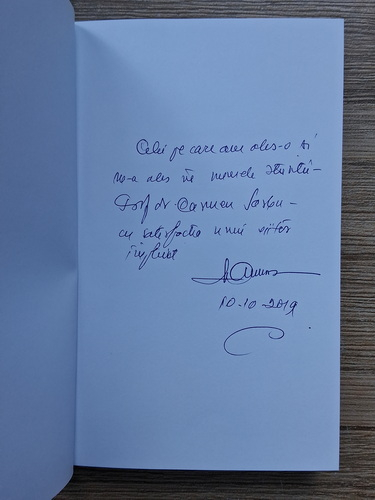 Celei pe care am ales-o și
m-a ales în numele științei –
Prof dr Carmen Sârbu –
cu satisfacția unui viitor
împlinit
10-10-2019